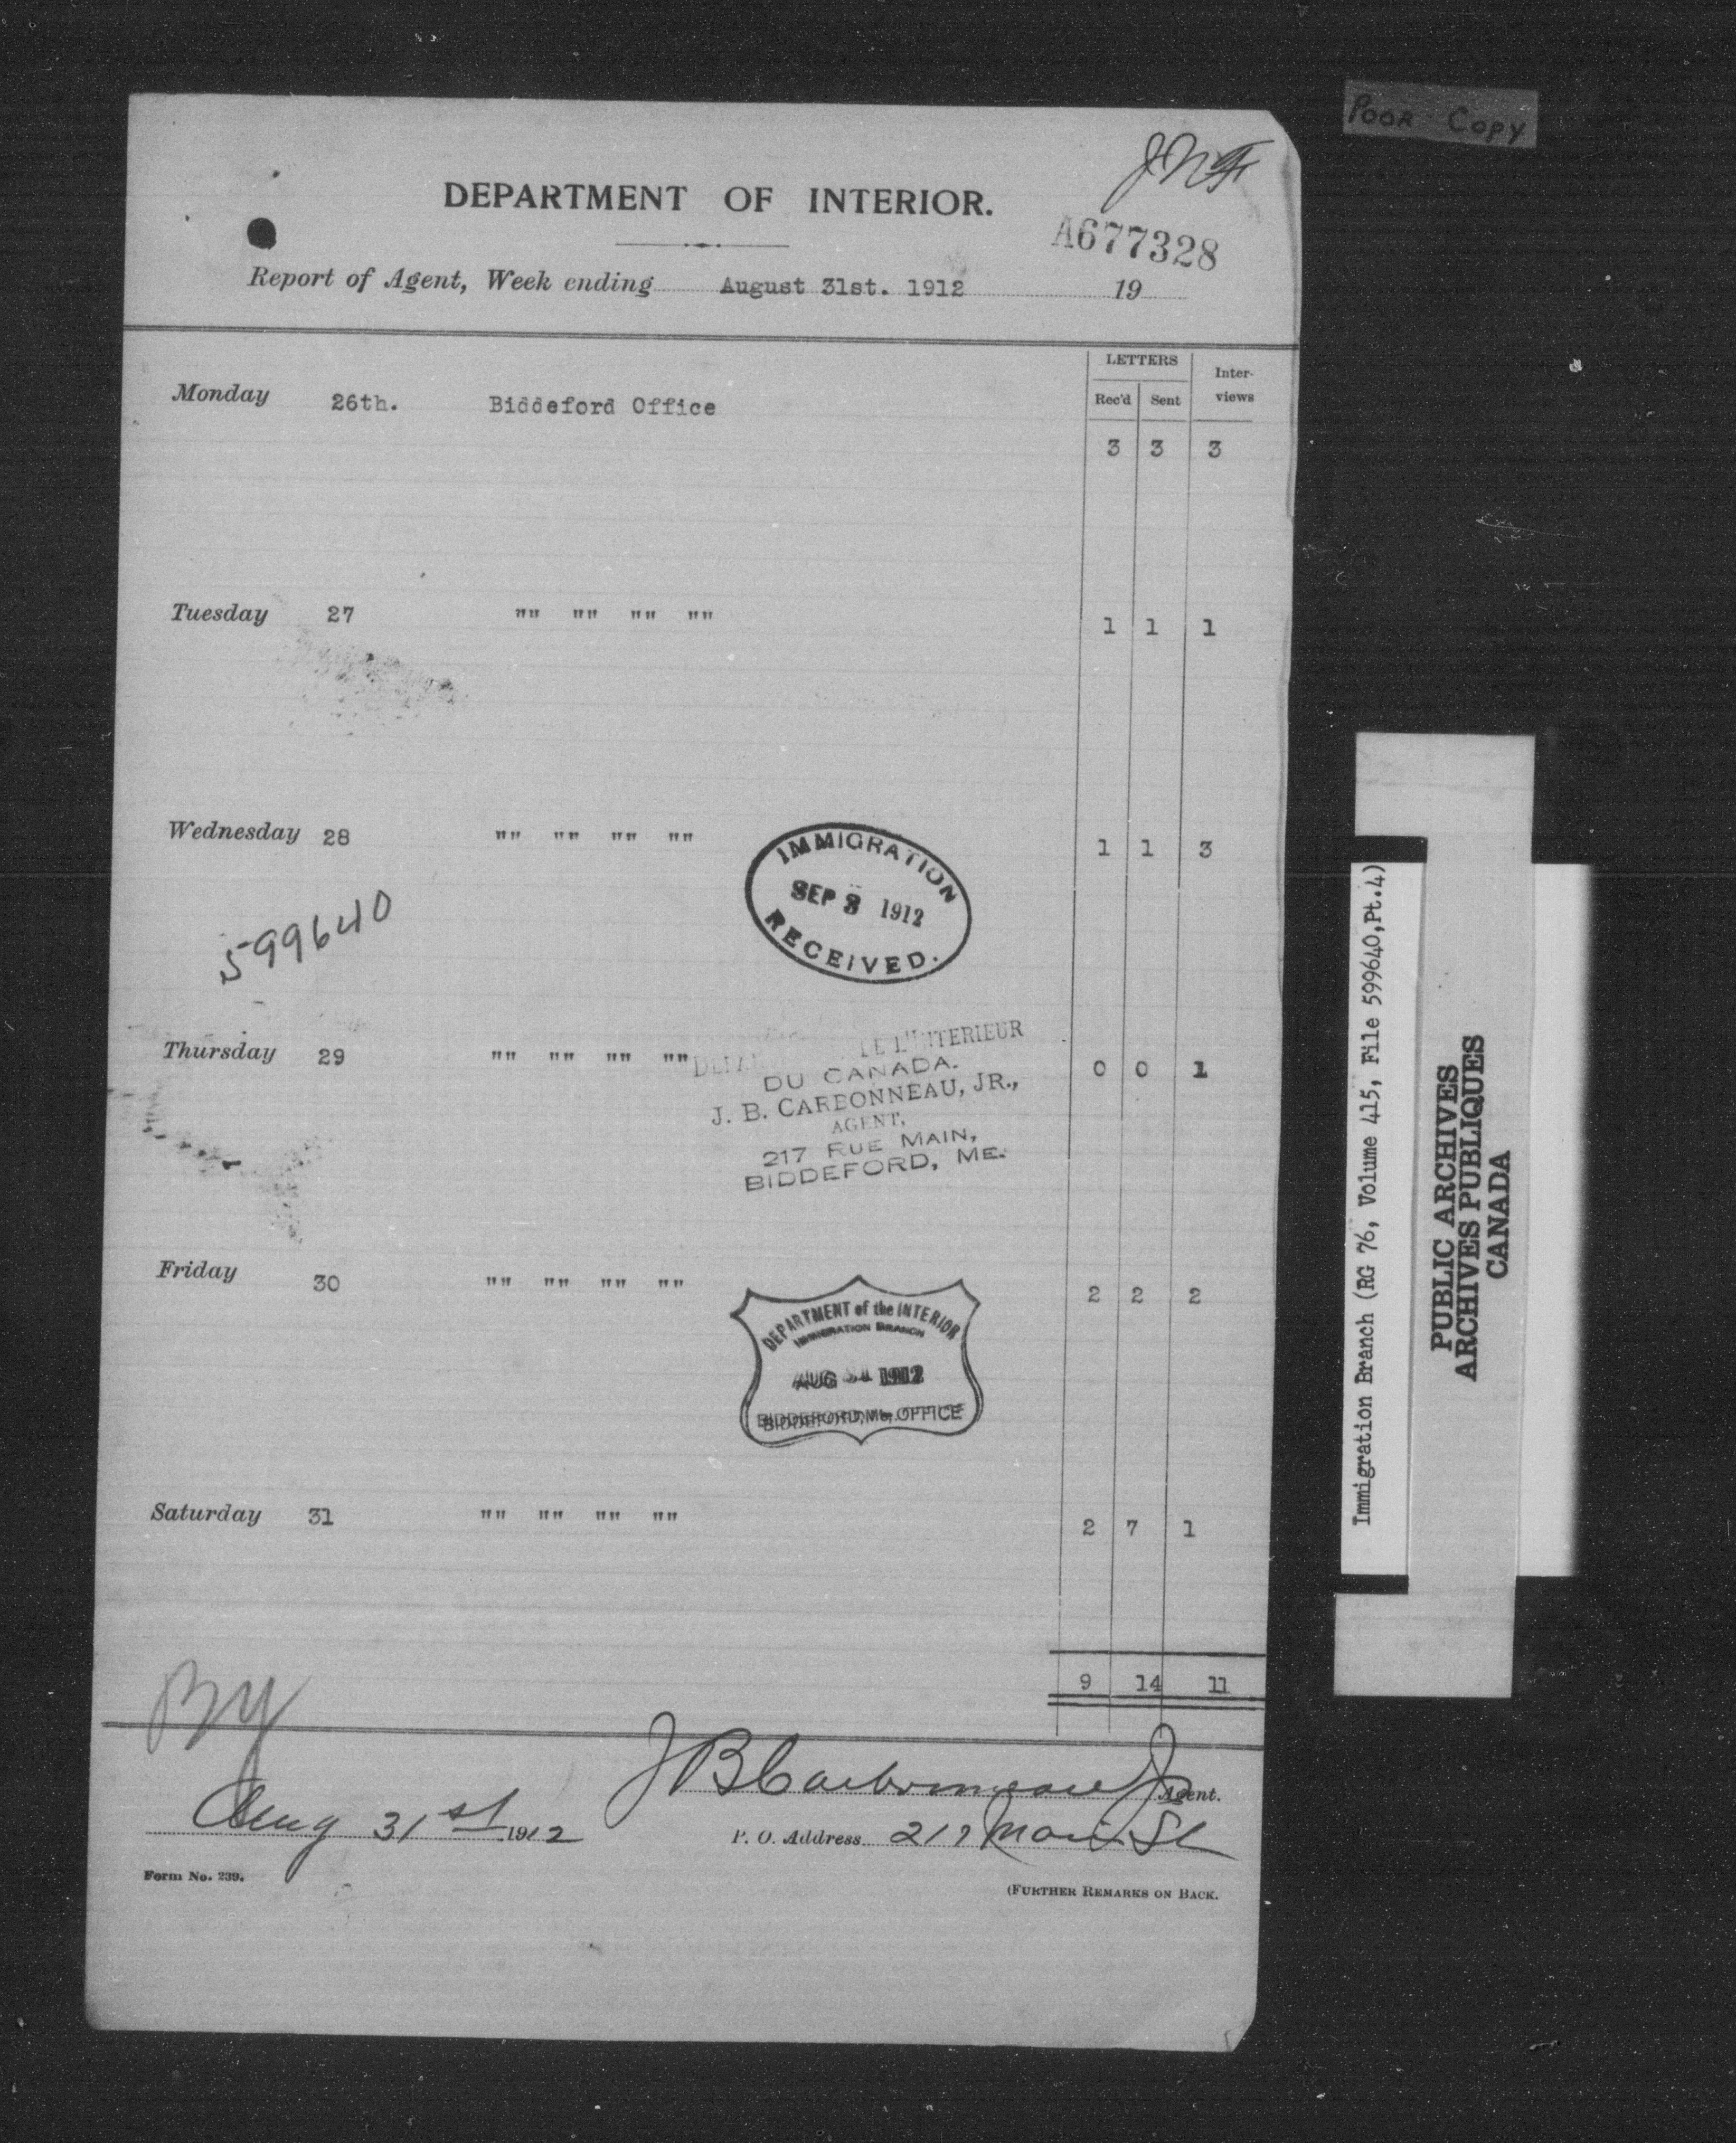 POOR COPY
JNF
DEPARTMENT OF INTERIOR.
A677328
Report of Agent, Week ending August 31st. 1912 19
LETTERS Inter-views
Rec'd Sent
Monday 26th. Biddeford Office
3 3 3
Tuesday 27 "" "" "" "" 1 1 1
Wednesday 28 "" "" "" "" 1 1 3
IMMIGRATION
SEP 3 1912
RECEIVED.
599640
Thursday 29 "" "" "" "" 0 0 1
DE L'INTERIEUR
DU CANADA.
J. B. CARBONNEAU, JR.,
AGENT,
217 RUE MAIN,
BIDDEFORD, ME.
Friday 30 "" "" "" "" 2 2 2
DEPARTMENT of the INTERIOR
IMMIGRATION BRANCH
AUG 31 1912
BIDDEFORD, Me, OFFICE
Saturday 31 "" "" "" "" 2 7 1
9 14 11
JB Carbonneau Jr Agent.
Aug 31st 1912 P. O. Address 217 Main St
Form No. 239.
(FURTHER REMARKS ON BACK.
Immigration Branch (RG 76, Volume 415, File 599640,Pt.4)
PUBLIC ARCHIVES
ARCHIVES PUBLIQUES
CANADA